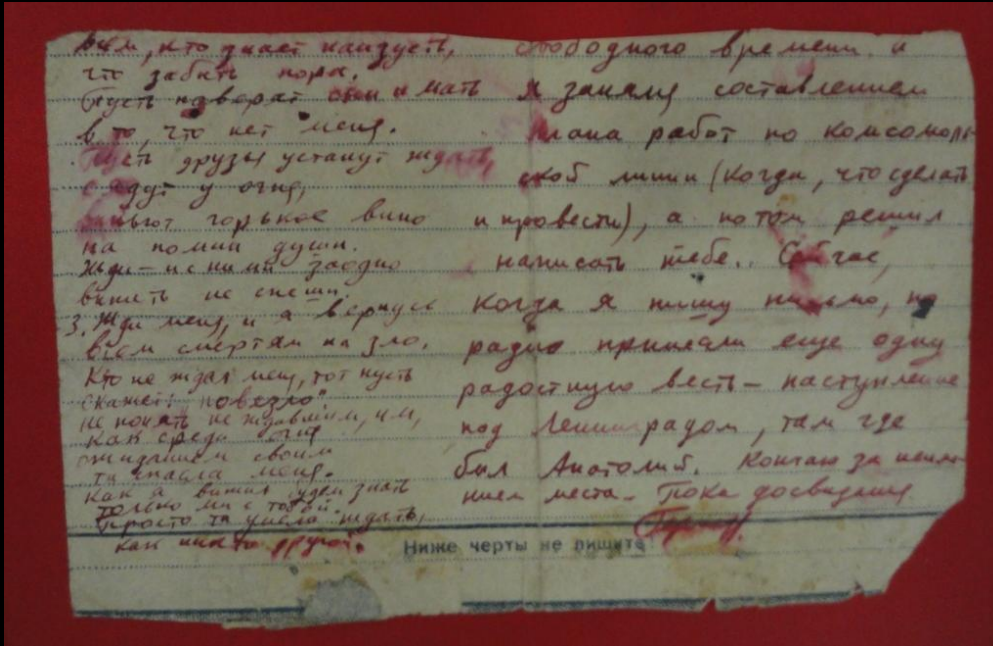 всем, кто знает наизусть,
что забыть пора.
Пусть поверят сын и мать
в то, что нет меня.
Пусть друзья устанут ждать,
сядут у огня,
выпьют горькое вино
на помин души.
Жди – и с ними заодно
выпить не спеши.
3. Жди меня, и я вернусь
всем смертям на зло.
Кто не ждал меня, тот пусть
скажет: повезло.
не понять не ждавшим, им,
как среди огня
ожиданием своим
ты спасла меня.
Как я выжил будем знать
только мы с тобой.
Просто ты умела ждать,
как никто другой.
свободного времени и
я занялся составлением
плана работ по комсомоль-
ской линии (когда, что сделать
и провести), а потом решил
написать тебе.. Сейчас,
когда я пишу письмо, по
радио принесли еще одну
радостную весть – наступление
под Ленинградом, там где
был Анатолий. Кончаю за неиме-
нием места. Пока досвидания
Ниже черты не пишите